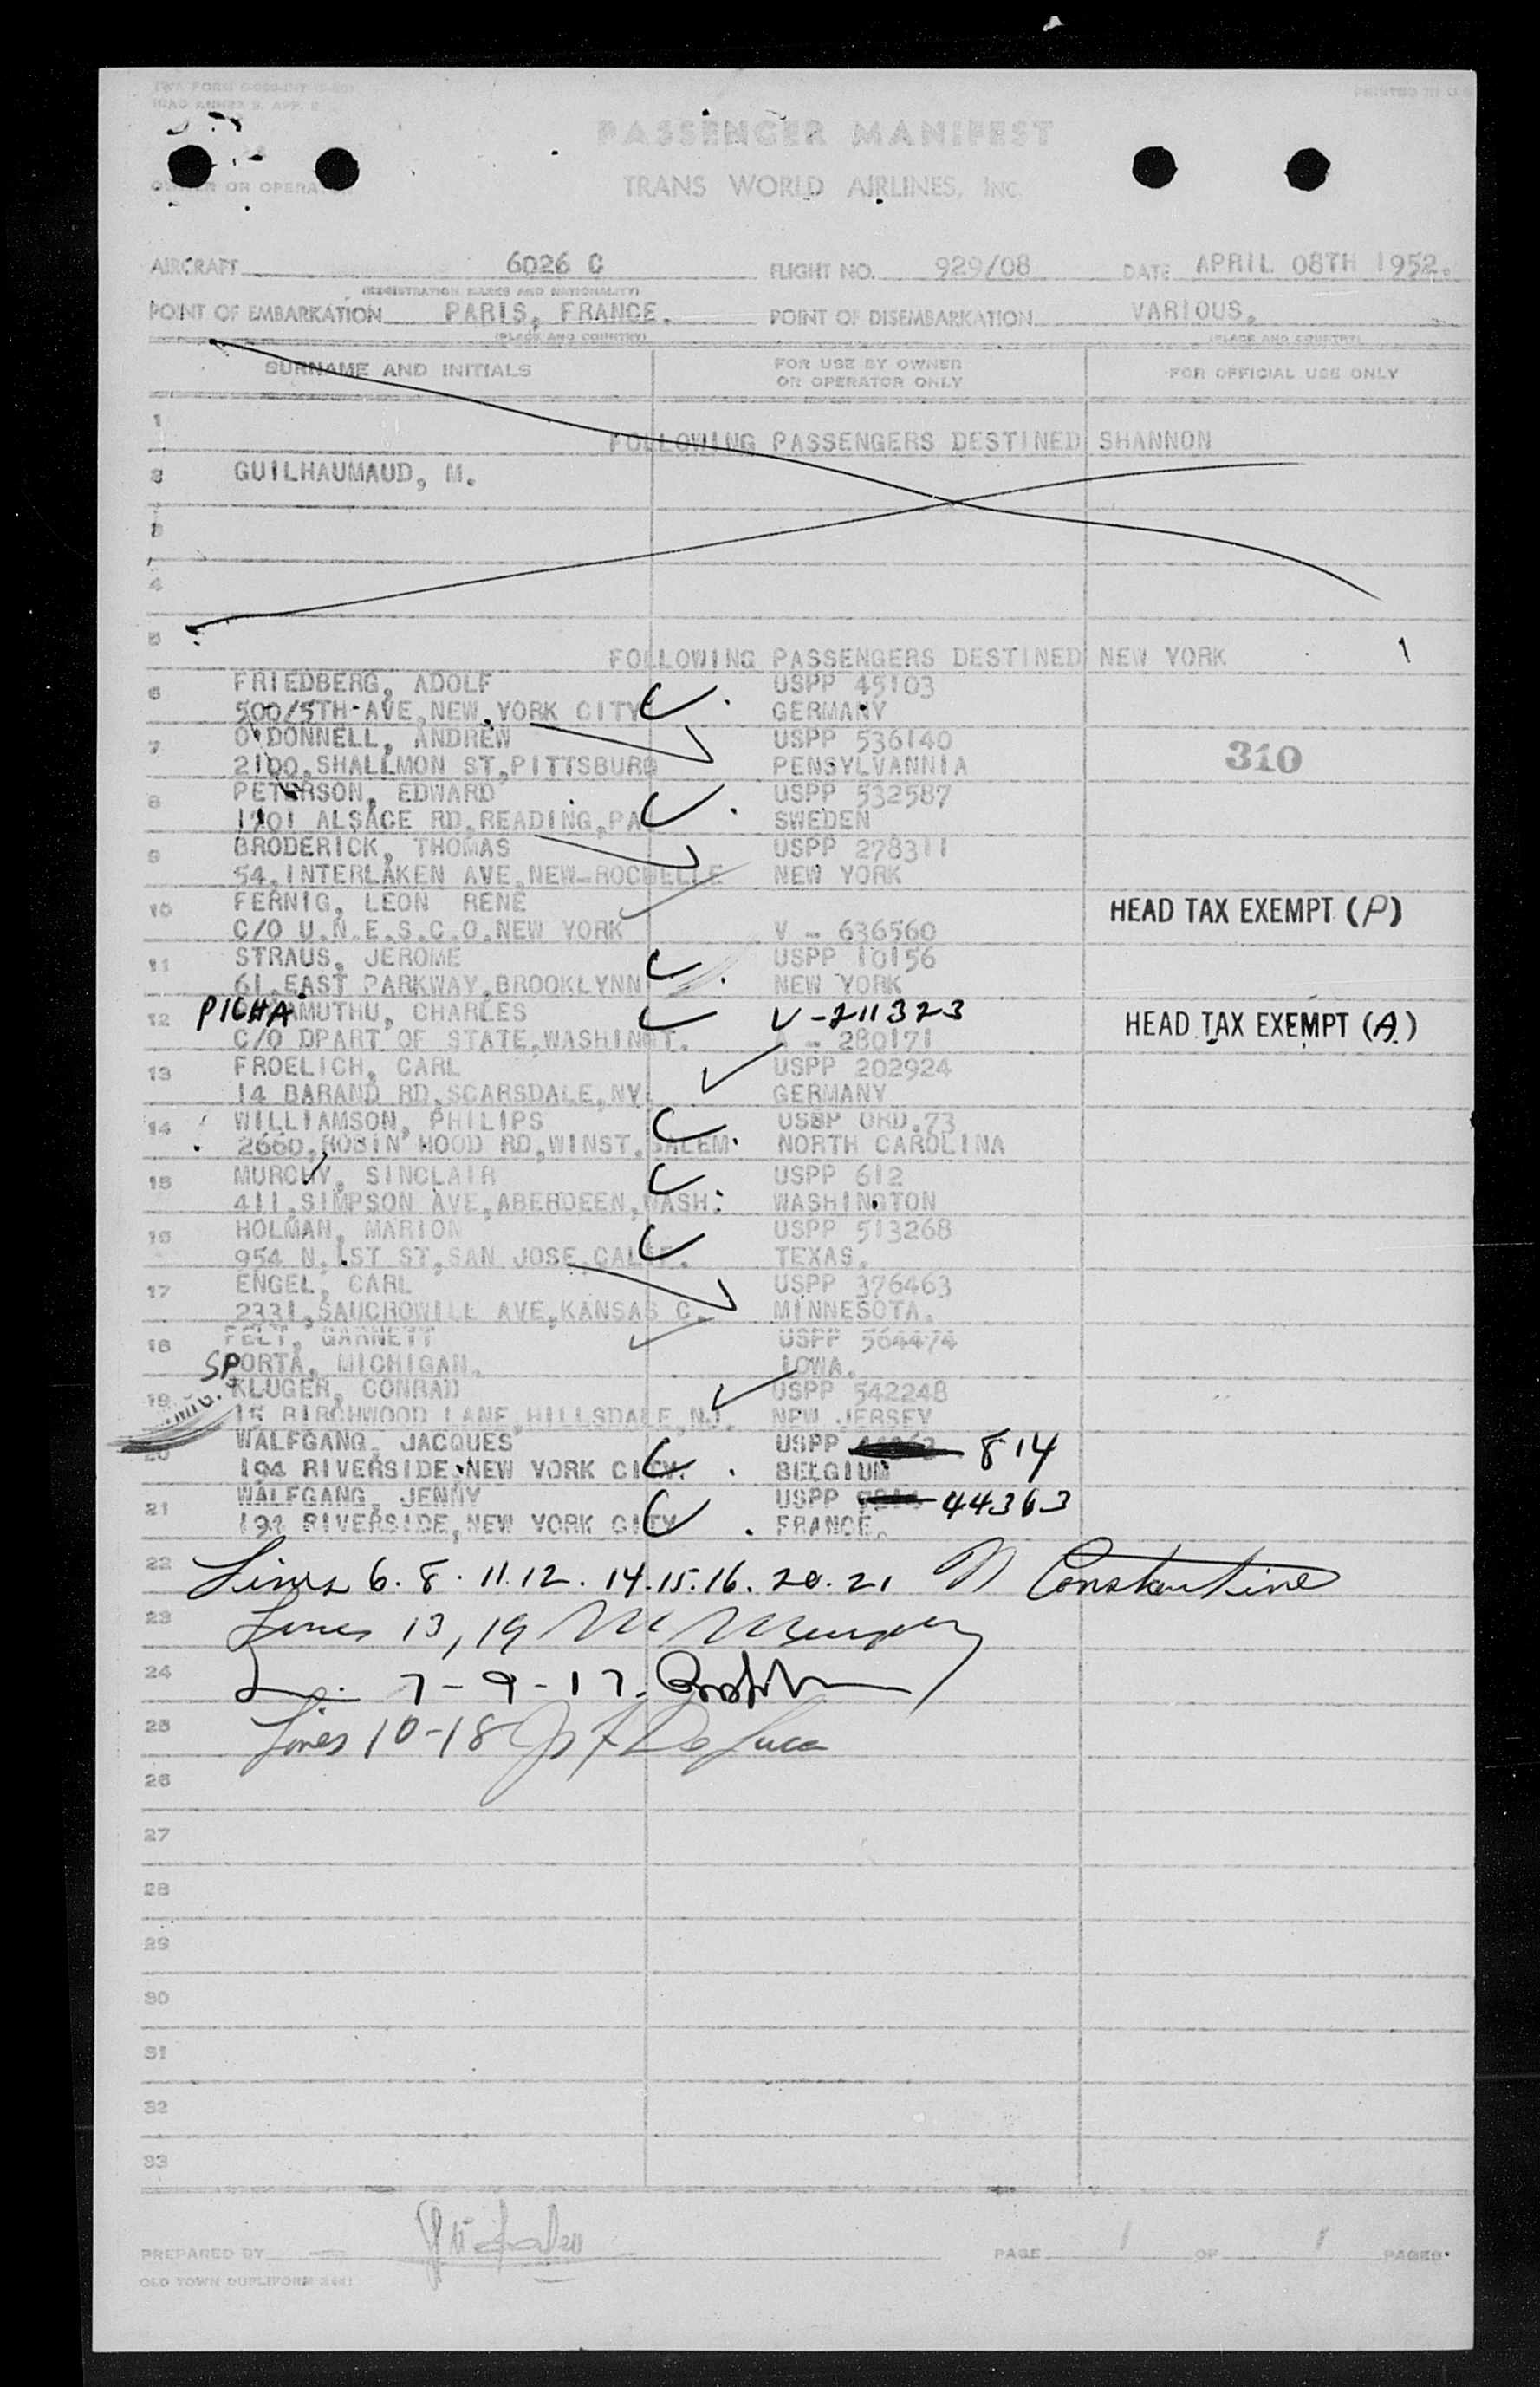 PRINTED IN U
PASSENGER MANIFEST
OWNER OR OPERATOR
TRANS WORLD AIRLINES, INC.
AIRCRAFT 6026 C FLIGHT NO. 929/08 DATE APRIL 08TH 1952.
(REGISTRATION MARKS AND NATIONALITY)
POINT OF EMBARKATION PARIS, FRANCE. POINT OF DISEMBARKATION VARIOUS,
(PLACE AND COUNTRY) (PLACE AND COUNTRY)
SURNAME AND INITIALS FOR USE BY OWNER OR OPERATOR ONLY FOR OFFICIAL USE ONLY
1
FOLLOWING PASSENGERS DESTINED SHANNON
2 GUILHAUMAUD, M.
3
4
5
FOLLOWING PASSENGERS DESTINED NEW YORK 1
6 FRIEDBERG, ADOLF USPP 45103
500/5TH AVE,NEW,YORK CITY GERMANY
7 O'DONNELL, ANDREW USPP 536140
2100,SHALLMON ST,PITTSBURG PENSYLVANNIA 310
8 PETERSON, EDWARD USPP 532587
1901 ALSACE RD,READING,PA SWEDEN
9 BRODERICK, THOMAS USPP 278311
54,INTERLAKEN AVE,NEW-ROCHELLE NEW YORK
10 FERNIG, LEON RENE HEAD TAX EXEMPT (P)
C/O U.N.E.S.C.O.NEW YORK V - 636560
11 STRAUS, JEROME USPP 10156
61,EAST PARKWAY,BROOKLYNN NEW YORK
12 PICHAMUTHU, CHARLES V-211323 HEAD TAX EXEMPT (A)
C/O DPART OF STATE,WASHINGT. - 280171
13 FROELICH, CARL USPP 202924
14 BARAND RD,SCARSDALE,NY. GERMANY
14 WILLIAMSON, PHILIPS USSP ORD.73
2660,ROBIN HOOD RD,WINST,SALEM. NORTH CAROLINA
15 MURCHY, SINCLAIR USPP 612
411,SIMPSON AVE,ABERDEEN,WASH. WASHINGTON
16 HOLMAN, MARION USPP 513268
954 N.1ST ST,SAN JOSE,CALIF. TEXAS.
17 ENGEL, CARL USPP 376463
2331,SAUCROWILL AVE,KANSAS C. MINNESOTA.
18 FELT, GARNETT USPP 564474
SPORTA, MICHIGAN. IOWA.
19 KLUGER, CONRAD USPP 542248
15 BIRCHWOOD LANE,HILLSDALE,NJ. NEW JERSEY
20 WALFGANG, JACQUES USPP 814
194 RIVERSIDE,NEW YORK CITY. BELGIUM
21 WALFGANG, JENNY USPP 44363
194 RIVERSIDE,NEW YORK CITY FRANCE.
22 Lines 6. 8. 11. 12. 14. 15. 16. 20. 21 N Constantine
23 Lines 13, 19
24 L. 7 - 9 - 17.
25 Lines 10-18 De Luca
26
27
28
29
30
31
32
33
PREPARED BY PAGE 1 OF 1 PAGES
OLD TOWN DUPLIFORM